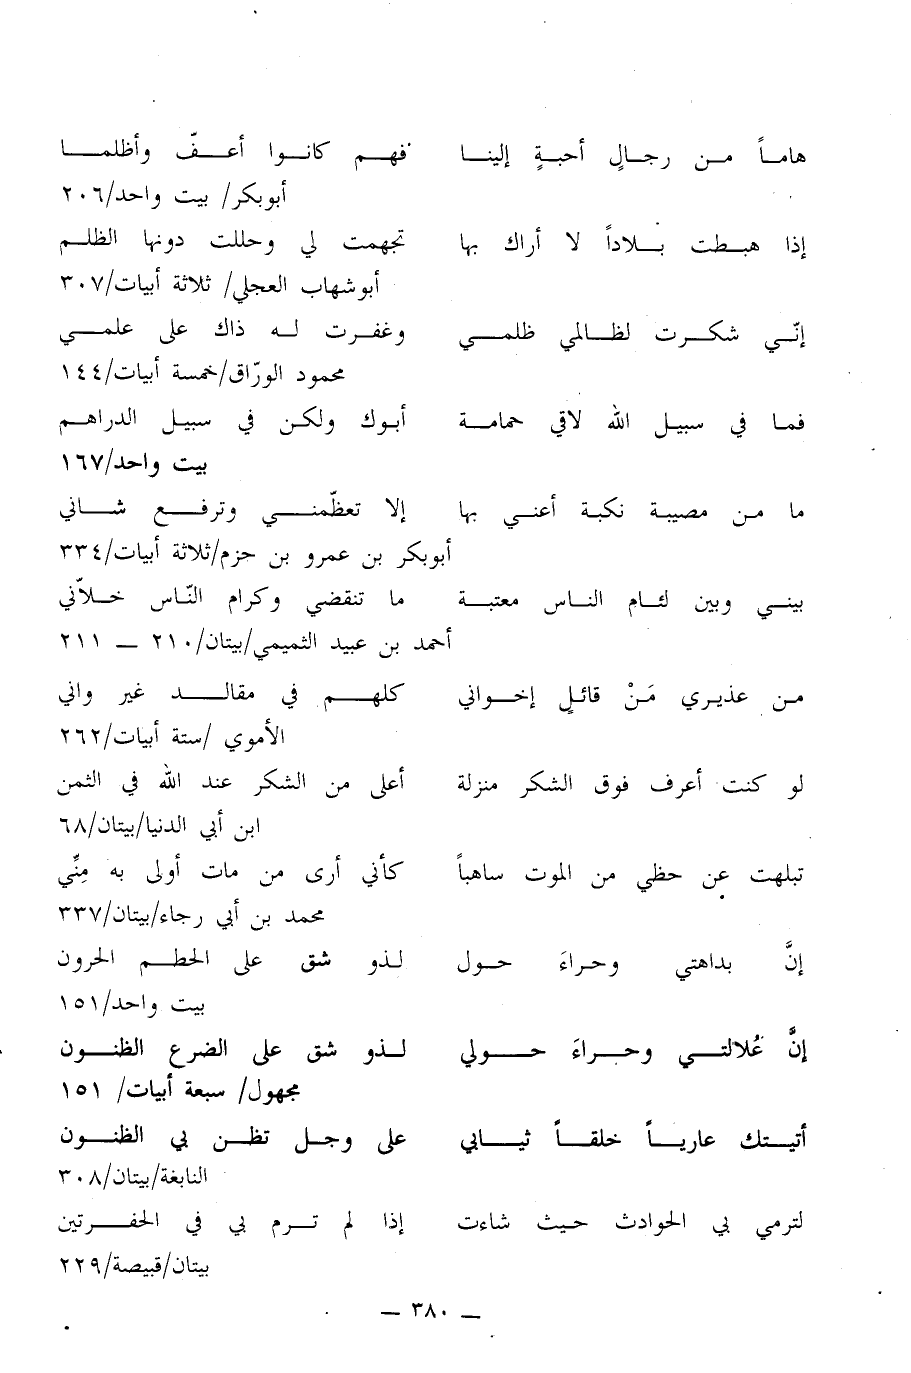 هاماً من رجالٍ أحبةٍ إلينا فهم كانوا أعفّ وأظلما
أبوبكر/ بيت واحد/٢٠٦
إذا هبطت بلاداً لا أراك بها تجهمت لي وحللت دونها الظلم
أبوشهاب العجلي/ ثلاثة أبيات/٣٠٧
إنّي شكرت لظالمي ظلمي وغفرت له ذاك على علمي
محمود الورّاق/خمسة أبيات/١٤٤
فما في سبيل الله لاقي حمامة أبوك ولكن في سبيل الدراهم
بيت واحد/١٦٧
ما من مصيبة نكبة أعني بها إلا تعظّمني وترفع شاني
أبوبكر بن عمرو بن حزم/ثلاثة أبيات/٣٣٤
بيني وبين لئام الناس معتبة ما تنقضي وكرام النّاس خلاّني
أحمد بن عبيد التميمي/بيتان/٢١٠ ــ ٢١١
من عذيري مَنْ قائلٍ إخواني كلهم في مقالد غير واني
الأموي /ستة أبيات/٢٦٢
لو كنت أعرف فوق الشكر منزلة أعلى من الشكر عند الله في الثمن
ابن أبي الدنيا/بيتان/٦٨
تبلهت عن حظي من الموت ساهباً كأني أرى من مات أولى به مِنِّي
محمد بن أبي رجاء/بيتان/٣٣٧
إنَّ بداهتي وحراءَ حول لذو شق على الحطم الحرون
بيت واحد/١٥١
إنَّ عُلالتي وحراءَ حولي لذو شق على الضرع الظنون
مجهول/ سبعة أبيات/ ١٥١
أتيتك عارياً خلقاً ثيابي على وجل تظن بي الظنون
النابغة/بيتان/٣٠٨
لترمي بي الحوادث حيث شاءت إذا لم ترم بي في الحفرتين
بيتان/قبيصة/٢٢٩
ــ ٣٨٠ ــ